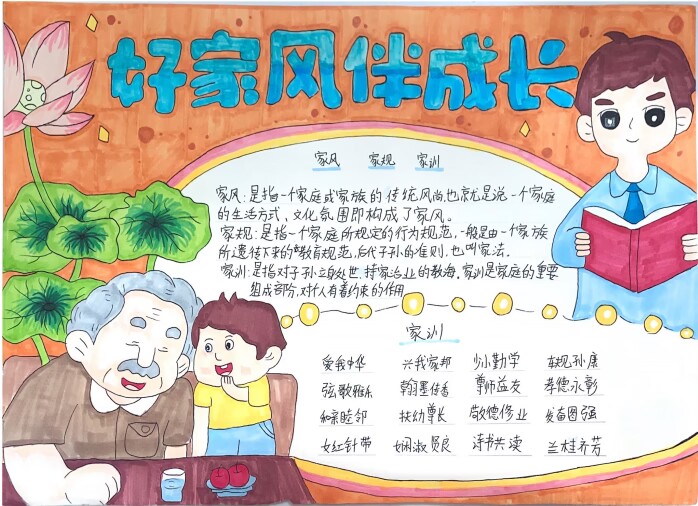 好家风伴成长
家风 家规 家训
家风:是指一个家庭或家族的传统风尚,也就是说一个家庭
的生活方式、文化氛围即构成了家风。
家规:是指一个家庭所规定的行为规范,一般是由一个家族
所遗传下来的教育规范,后代子孙的准则,也叫家法。
家训:是指对子孙立的处世、持家治业的教诲,家训是家庭的重要
组成部分,对个人有着约束的作用
家训
爱我中华 兴我家邦 少小勤学 孝德永彰
弦歌雅乐 翰墨传香 尊师益友
和亲睦邻 扶幼尊长 敬德修业 发奋图强
女红针带 娴淑贤良 诗书共读 兰桂齐芳